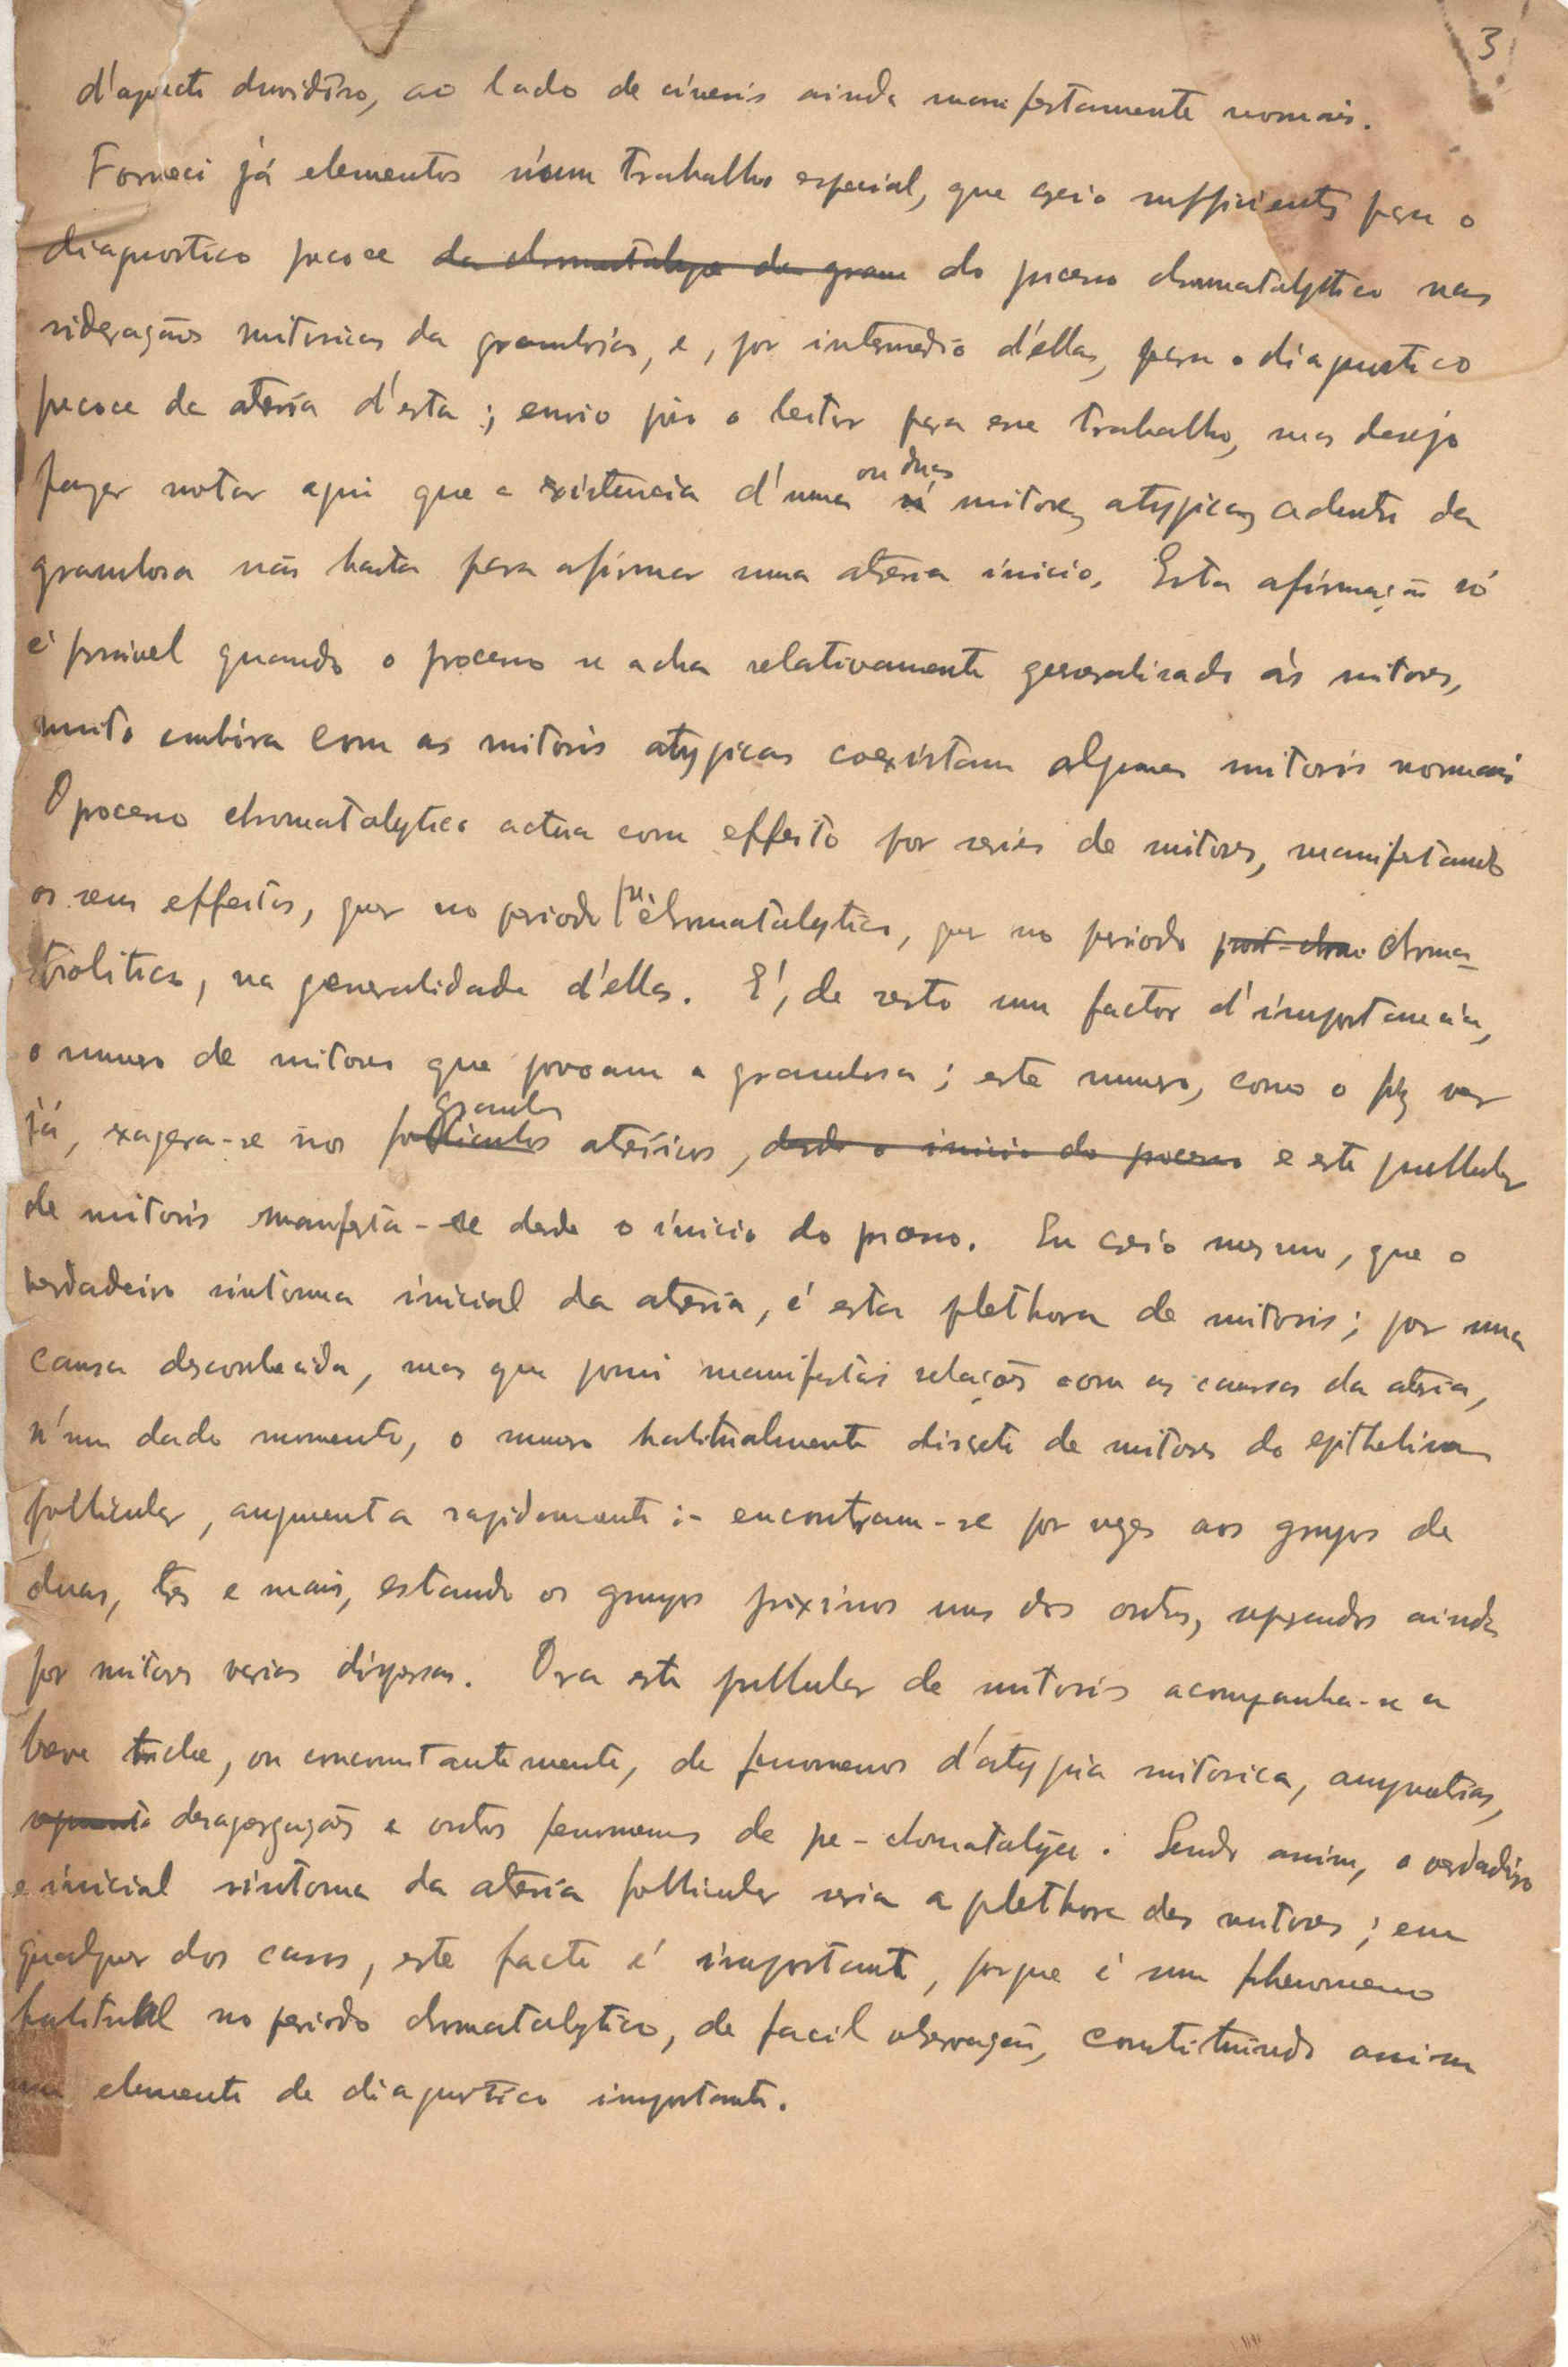 3
d'aspecto duvidoso, ao lado de cineses ainda manifestamente normais.
Forneci já elementos n'um trabalho especial, que creio sufficientes para o
diagnostico precoce da chromatolyse da gran do processo chromatolytico nas
siderações mitosicas da granulosa, e, por intermedio d'ellas, para o diagnostico
precoce da atresia d'esta; envio pois o leitor para esse trabalho, mas desejo
fazer notar aqui que a existencia d'uma ou duas mitoses atypicas adentro da
granulosa não basta para afirmar uma atresia inicio. Esta afirmação só
é possivel quando o processo se acha relativamente generalisado ás mitoses,
muito embóra com as mitosis atypicas coexistam algumas mitosis normais
O processo chromatolytico actua com effeito por series de mitoses, manifestando
os seus effeitos, quer no periodo pre chromatolytico, quer no periodo post-chro chroma-
trolitico, na generalidade d'ellas. E', de resto um factor d'importancia,
o numero de mitoses que povoam a granulosa; este numero, como o fiz ver
já, exagera-se nos folliculos granulos atresicos, desde o inicio do processo e este pullular
de mitosis manifesta-se desde o inicio do processo. Eu creio mesmo, que o
verdadeiro sintoma inicial da atresia, é esta plethora de mitosis; por uma
causa desconhecida, mas que possui manifestas relações com as causas da atresia,
n'um dado momento, o numero habitualmente discreto de mitoses do epithelium
follicular, augmenta rapidamente:- encontram-se por vezes aos grupos de
duas, tres e mais, estando os grupos próximos uns dos outros, separados ainda
por mitoses varias dispersas. Ora este pullular de mitosis acompanha-se a
breve trecho, ou concomitantemente, de fenomenos d'atypia mitosica, amyotias,
desagregações e outros fenomenos de pre-chromatolyse. Sendo assim, o verdadeiro
e inicial sintoma da atresia follicular seria a plethora das mitoses; em
qualquer dos casos, este facto é importante, porque é um phenomeno
habitual no periodo chromatolytico, de facil observação, constituindo assim
um elemento de diagnostico importante.